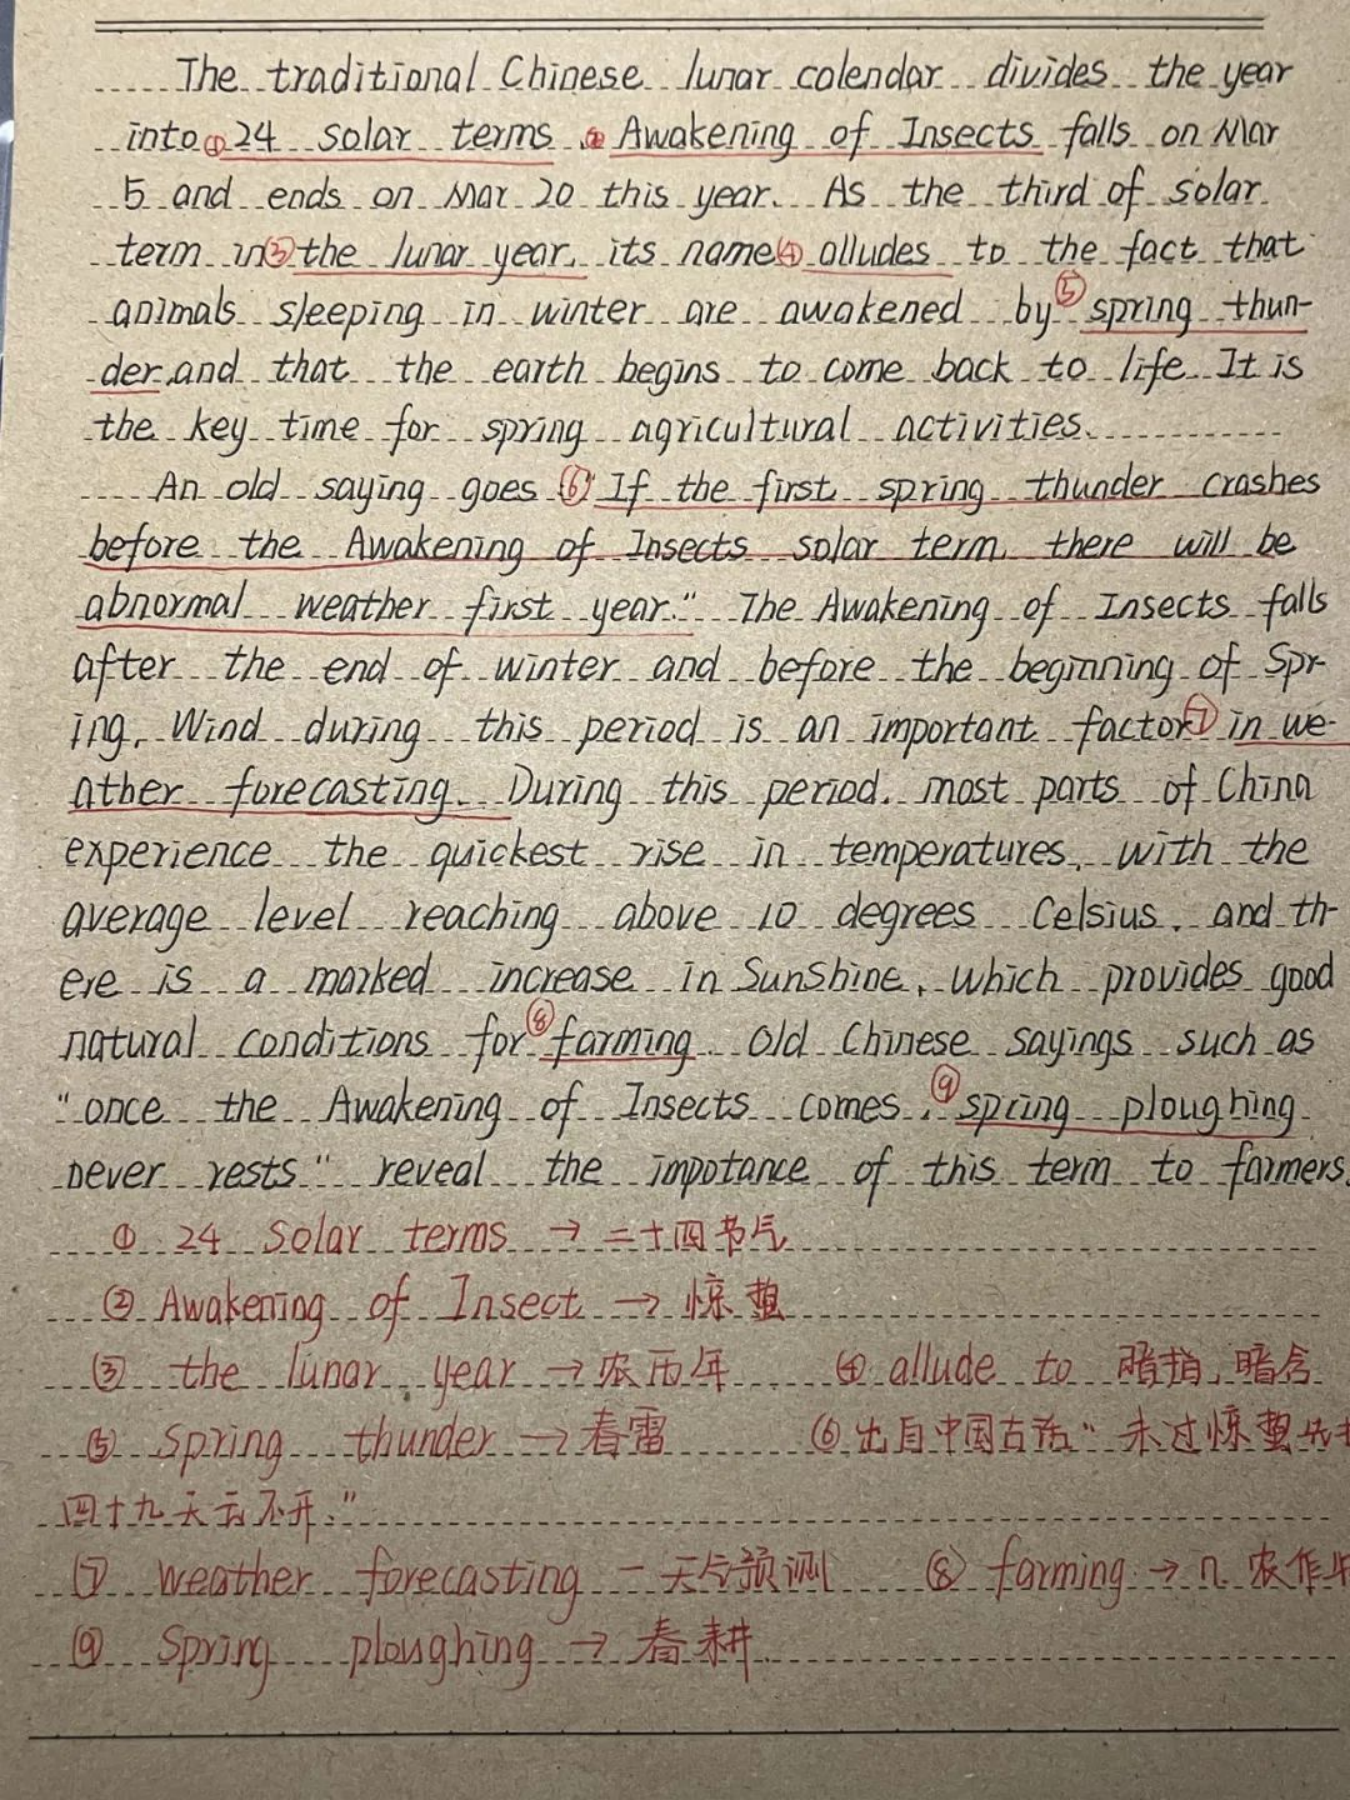 The traditional Chinese lunar calendar divides the year
into ① 24 solar terms . ② Awakening of Insects falls on Mar
5 and ends on Mar 20 this year. As the third of solar
term in ③ the lunar year, its name ④ alludes to the fact that
animals sleeping in winter are awakened by ⑤ spring thun-
der, and that the earth begins to come back to life. It is
the key time for spring agricultural activities.
An old saying goes ⑥ "If the first spring thunder crashes
before the Awakening of Insects solar term, there will be
abnormal weather first year." The Awakening of Insects falls
after the end of winter and before the beginning of Spr-
ing. Wind during this period is an important factor ⑦ in we-
ather forecasting. During this period, most parts of China
experience the quickest rise in temperatures, with the
average level reaching above 10 degrees Celsius, and th-
ere is a marked increase in SunShine, which provides good
natural conditions for ⑧ farming. Old Chinese sayings such as
"once the Awakening of Insects comes, ⑨ spring ploughing
never rests" reveal the impotance of this term to farmers.
① 24 Solar terms → 二十四节气
② Awakening of Insect → 惊蛰
③ the lunar year → 农历年 ④ allude to 暗指, 暗含
⑤ spring thunder → 春雷 ⑥ 出自中国古话"未过惊蛰先打
四十九天云不开."
⑦ weather forecasting - 天气预测 ⑧ farming → n. 农作
⑨ Spring ploughing → 春耕.